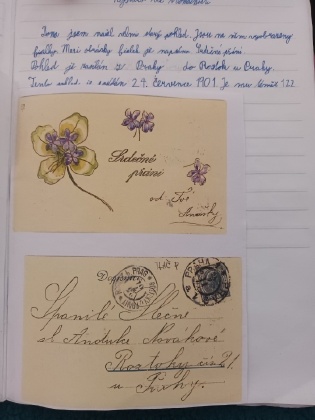 Jsme jsem našel velmi starý pohled. Jsou na něm vyobrazeny
fialky. Mezi obrázky fialek je napsáno Srdečné přání.
Pohled je poslán z Prahy do Roztok u Prahy.
Tento pohled je 24. července 1901. Je mu téměř 122
Srdečné
přání
od Tvé
Dopisnice
PRAHA
Spanilé Slečně
sl. Andulce Novákové
Roztoky čís. 21.
u Prahy.